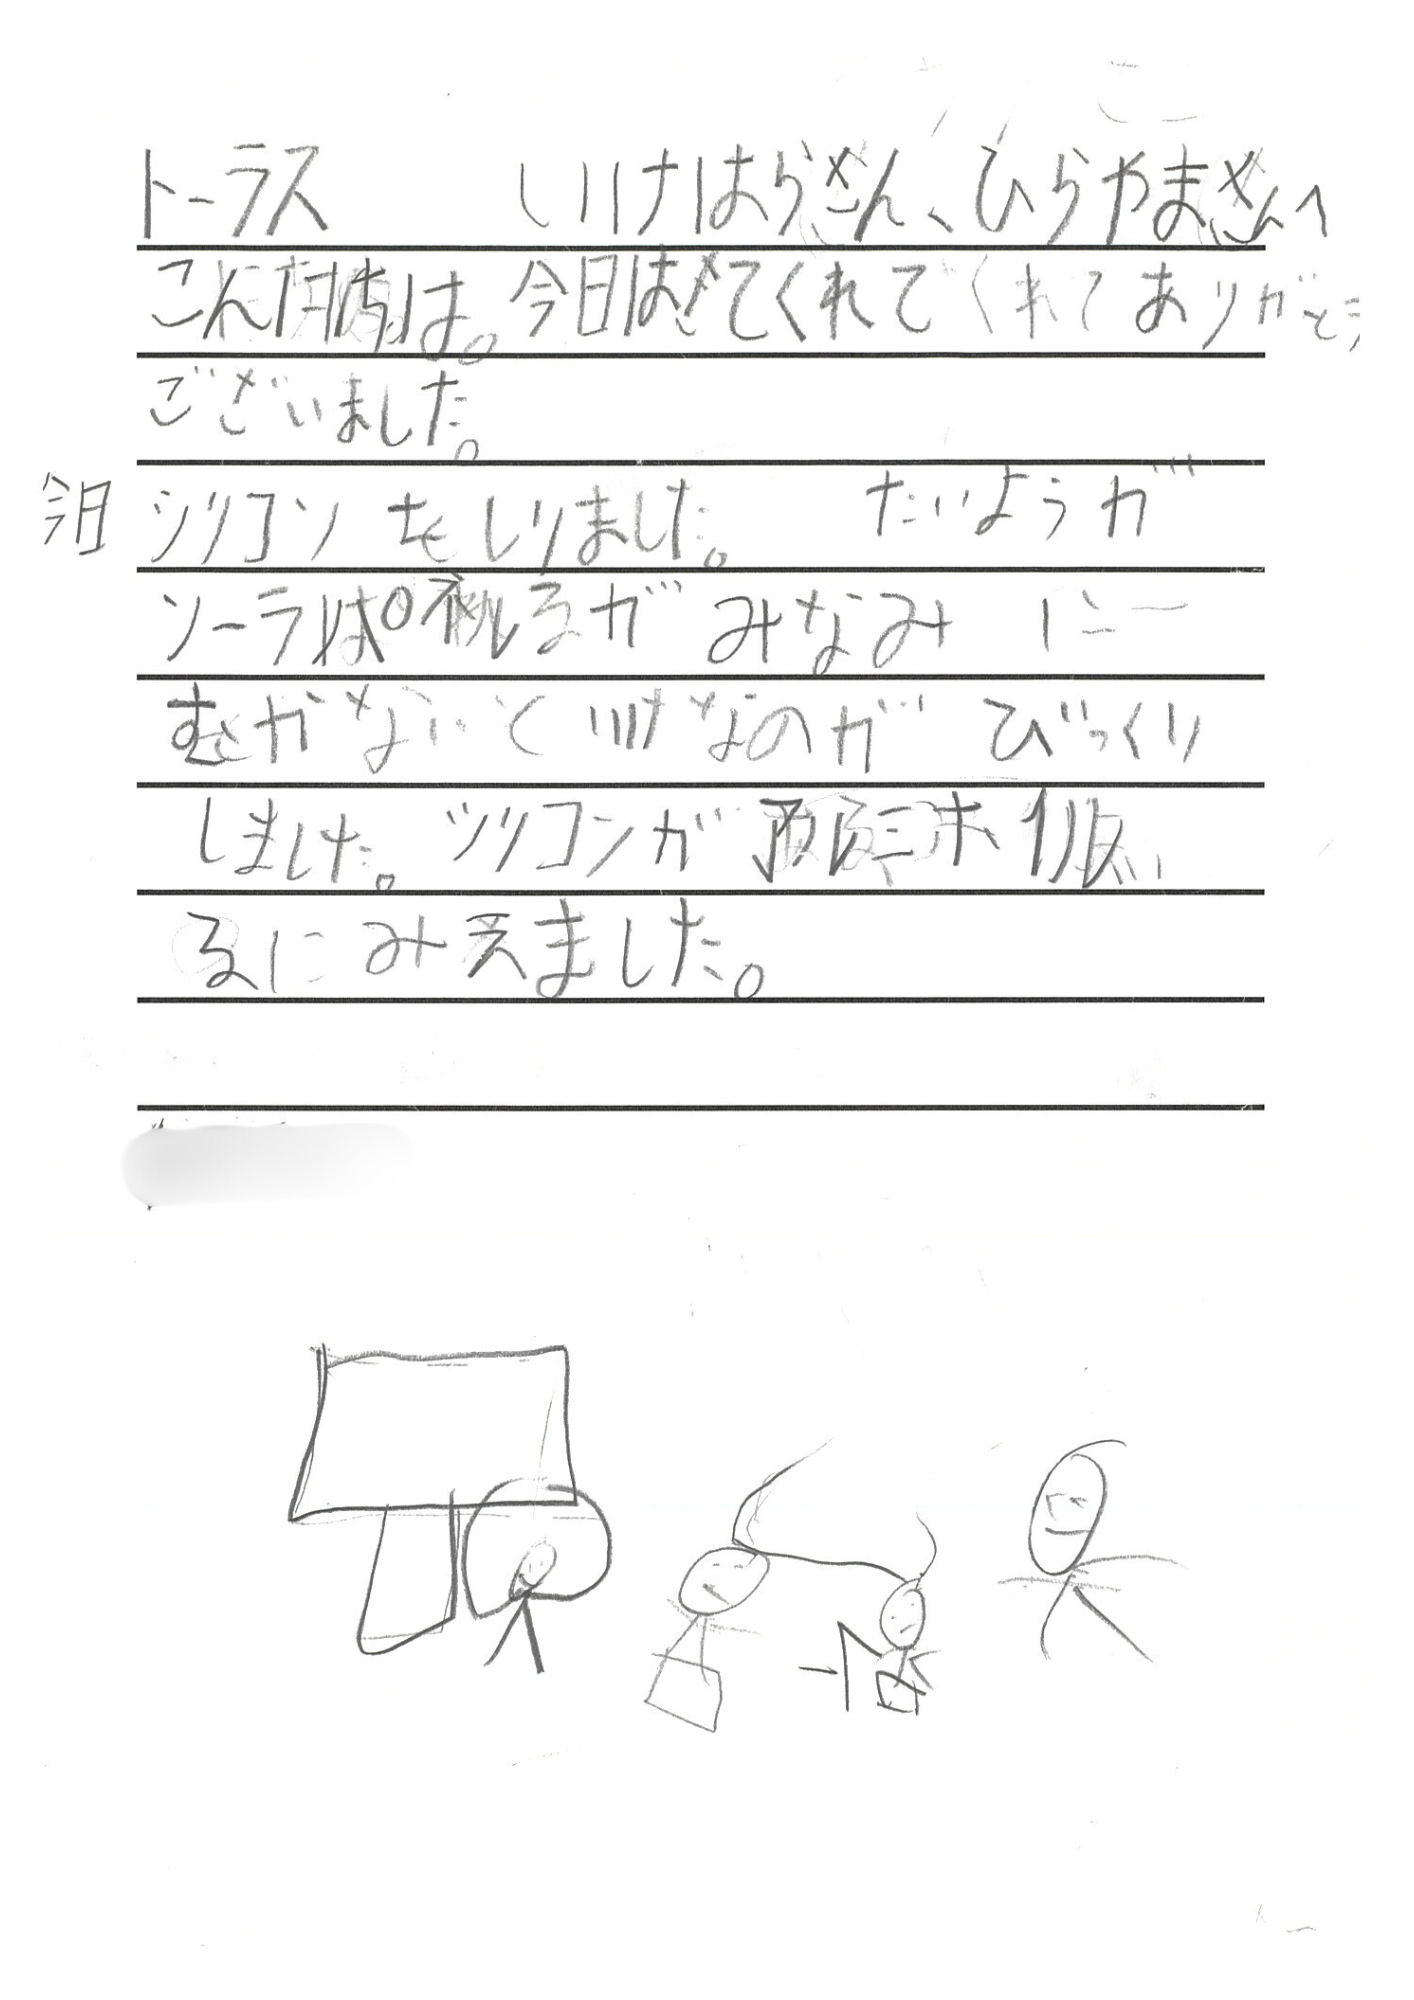 トーラス いけはらさん、ひらやまさんへ
こんは。今日はきてくれてくれてありがとう
ございました。
今日 シリコンもしりました。 たいようが
ソーラぱるが みなみ に
むかないといけなのが びっくり
しました。シリコンが
るにみえました。